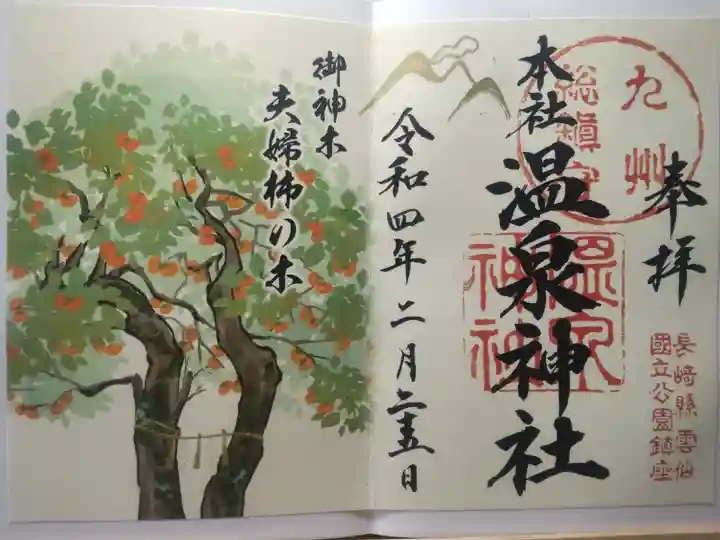 奉拝
長崎縣雲仙
國立公園鎮座
九州
総鎮守
本社 温泉神社
温泉
神社
令和四年二月二十五日
御神木
夫婦柿の木